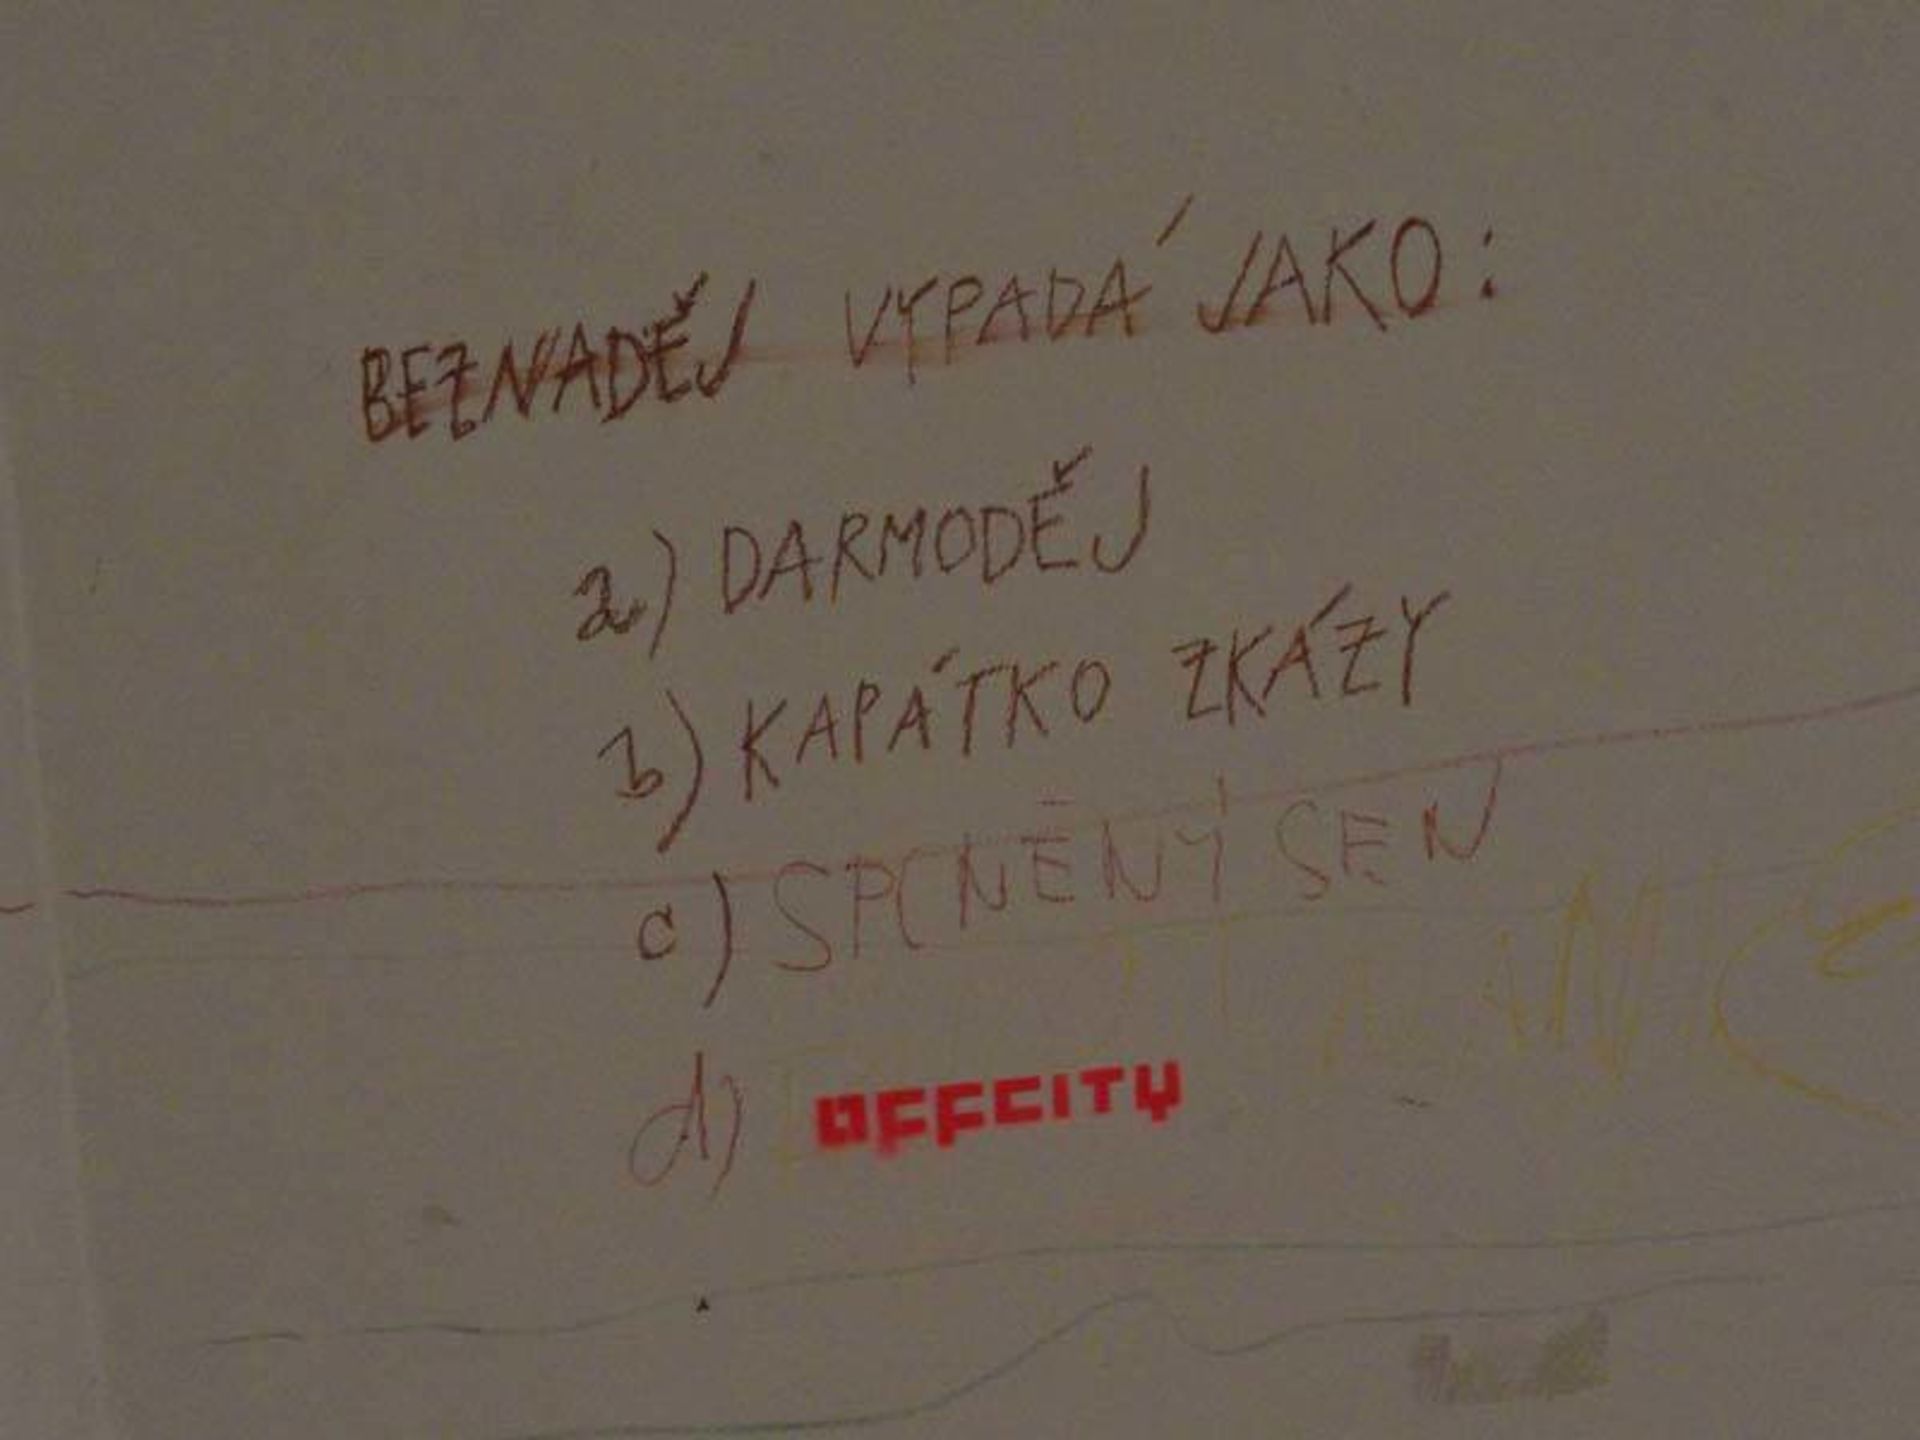 BEZNADĚJ VYPADÁ JAKO:
a) DARMODĚJ
b) KAPÁTKO ZKÁZY
c) SEN
d) OFFCITY